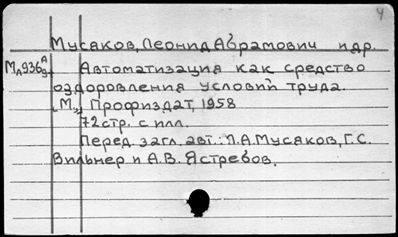 4
Мусаков, Леонид Абрамович и др.
Автоматизация как средство
оздоровления условий труда.
[М.,] Профиздат, 1958
72 стр. с илл.
Перед загл. авт.: Л.А. Мусаков, Г.С.
Вильнер и А.В. Ястребов.